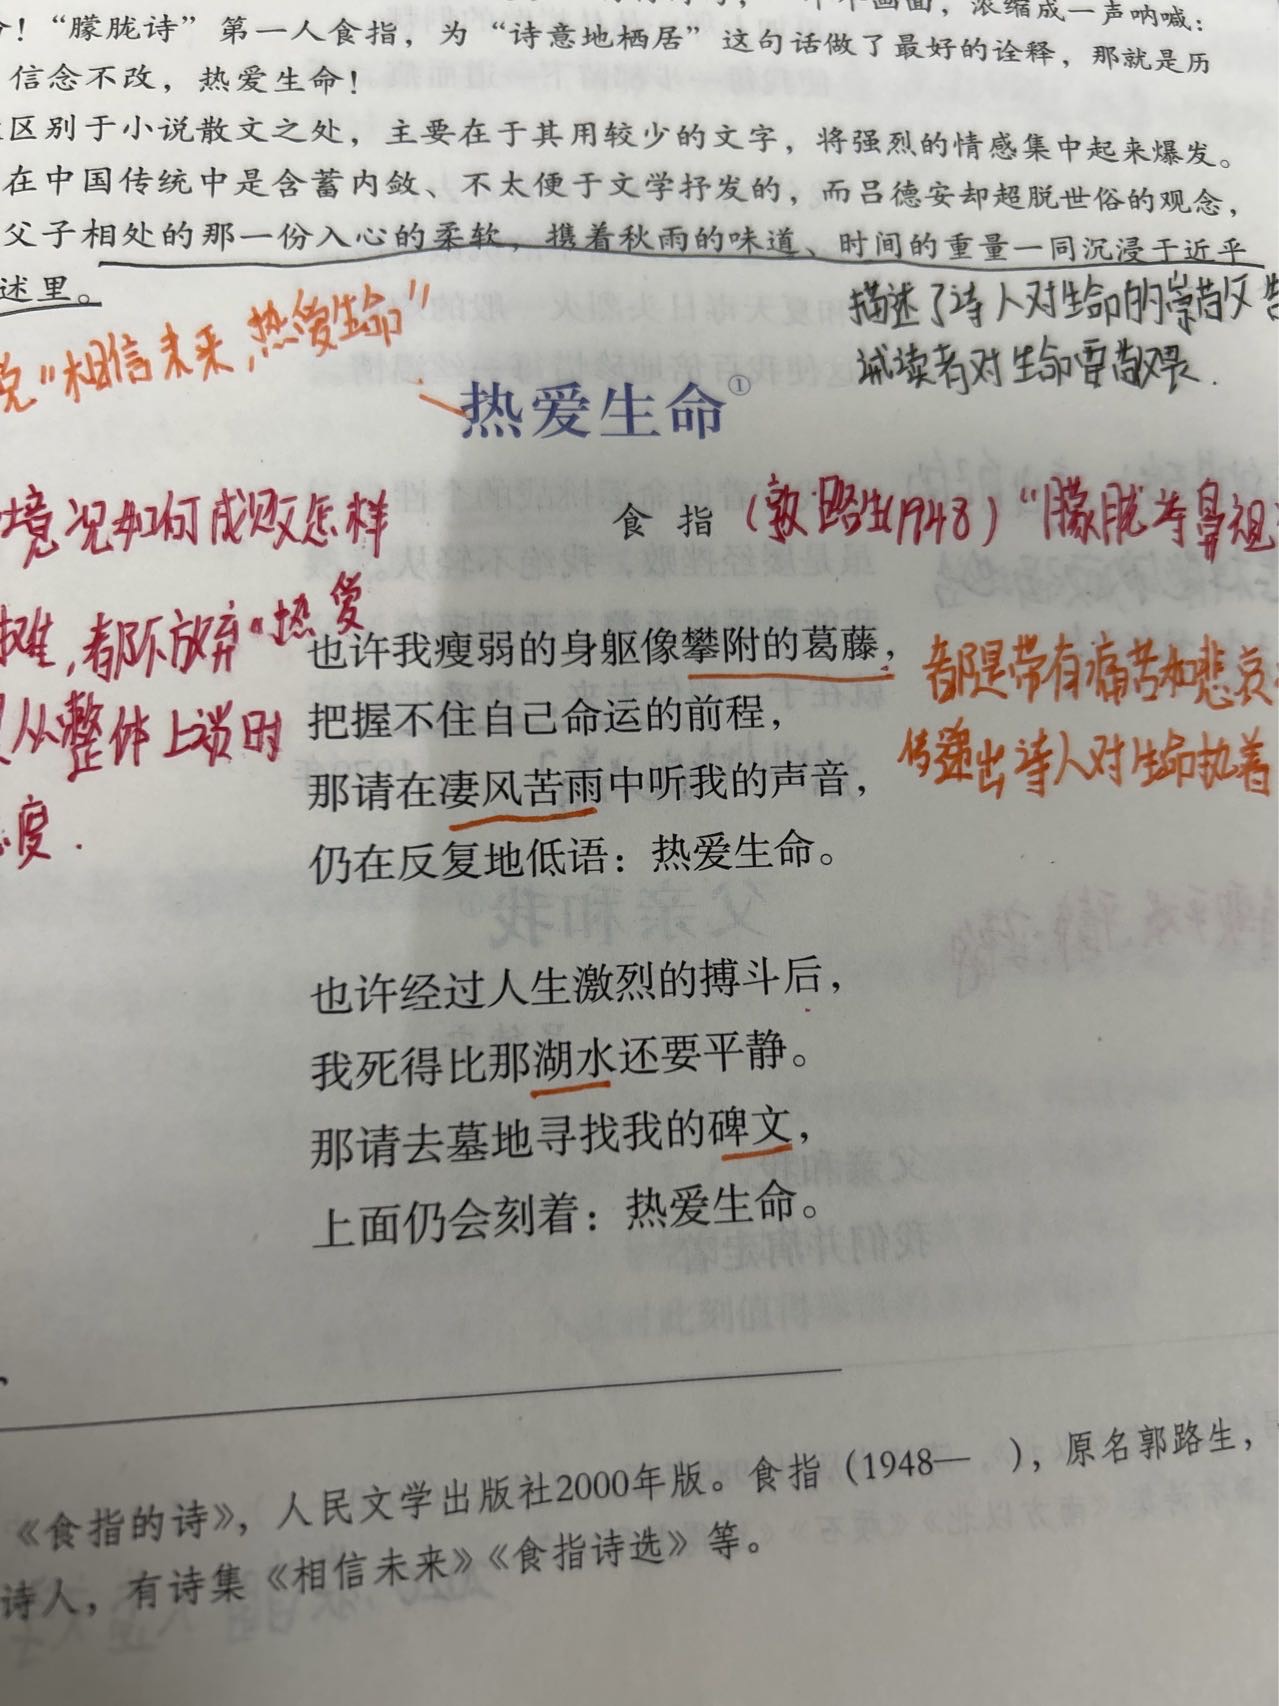 个画面，浓缩成一声呐喊：
！“朦胧诗”第一人食指，为“诗意地栖居”这句话做了最好的诠释，那就是历
信念不改，热爱生命！
区别于小说散文之处，主要在于其用较少的文字，将强烈的情感集中起来爆发。
在中国传统中是含蓄内敛、不太便于文学抒发的，而吕德安却超脱世俗的观念，
父子相处的那一份入心的柔软，携着秋雨的味道、时间的重量一同沉浸于近乎
述里。
描述了诗人对生命的崇敬又告
诫读者对生命要敬畏.
“相信未来,热爱生命”
热爱生命①
境况如何成败怎样
食 指
路生1948）“朦胧诗鼻祖
难,都不放弃“热爱
也许我瘦弱的身躯像攀附的葛藤，
都是带有痛苦和悲哀
从整体上说时
把握不住自己命运的前程，
传递出诗人对生命执着
那请在凄风苦雨中听我的声音，
度.
仍在反复地低语：热爱生命。
也许经过人生激烈的搏斗后，
我死得比那湖水还要平静。
那请去墓地寻找我的碑文，
上面仍会刻着：热爱生命。
《食指的诗》，人民文学出版社2000年版。食指（1948— ），原名郭路生，
诗人，有诗集《相信未来》《食指诗选》等。